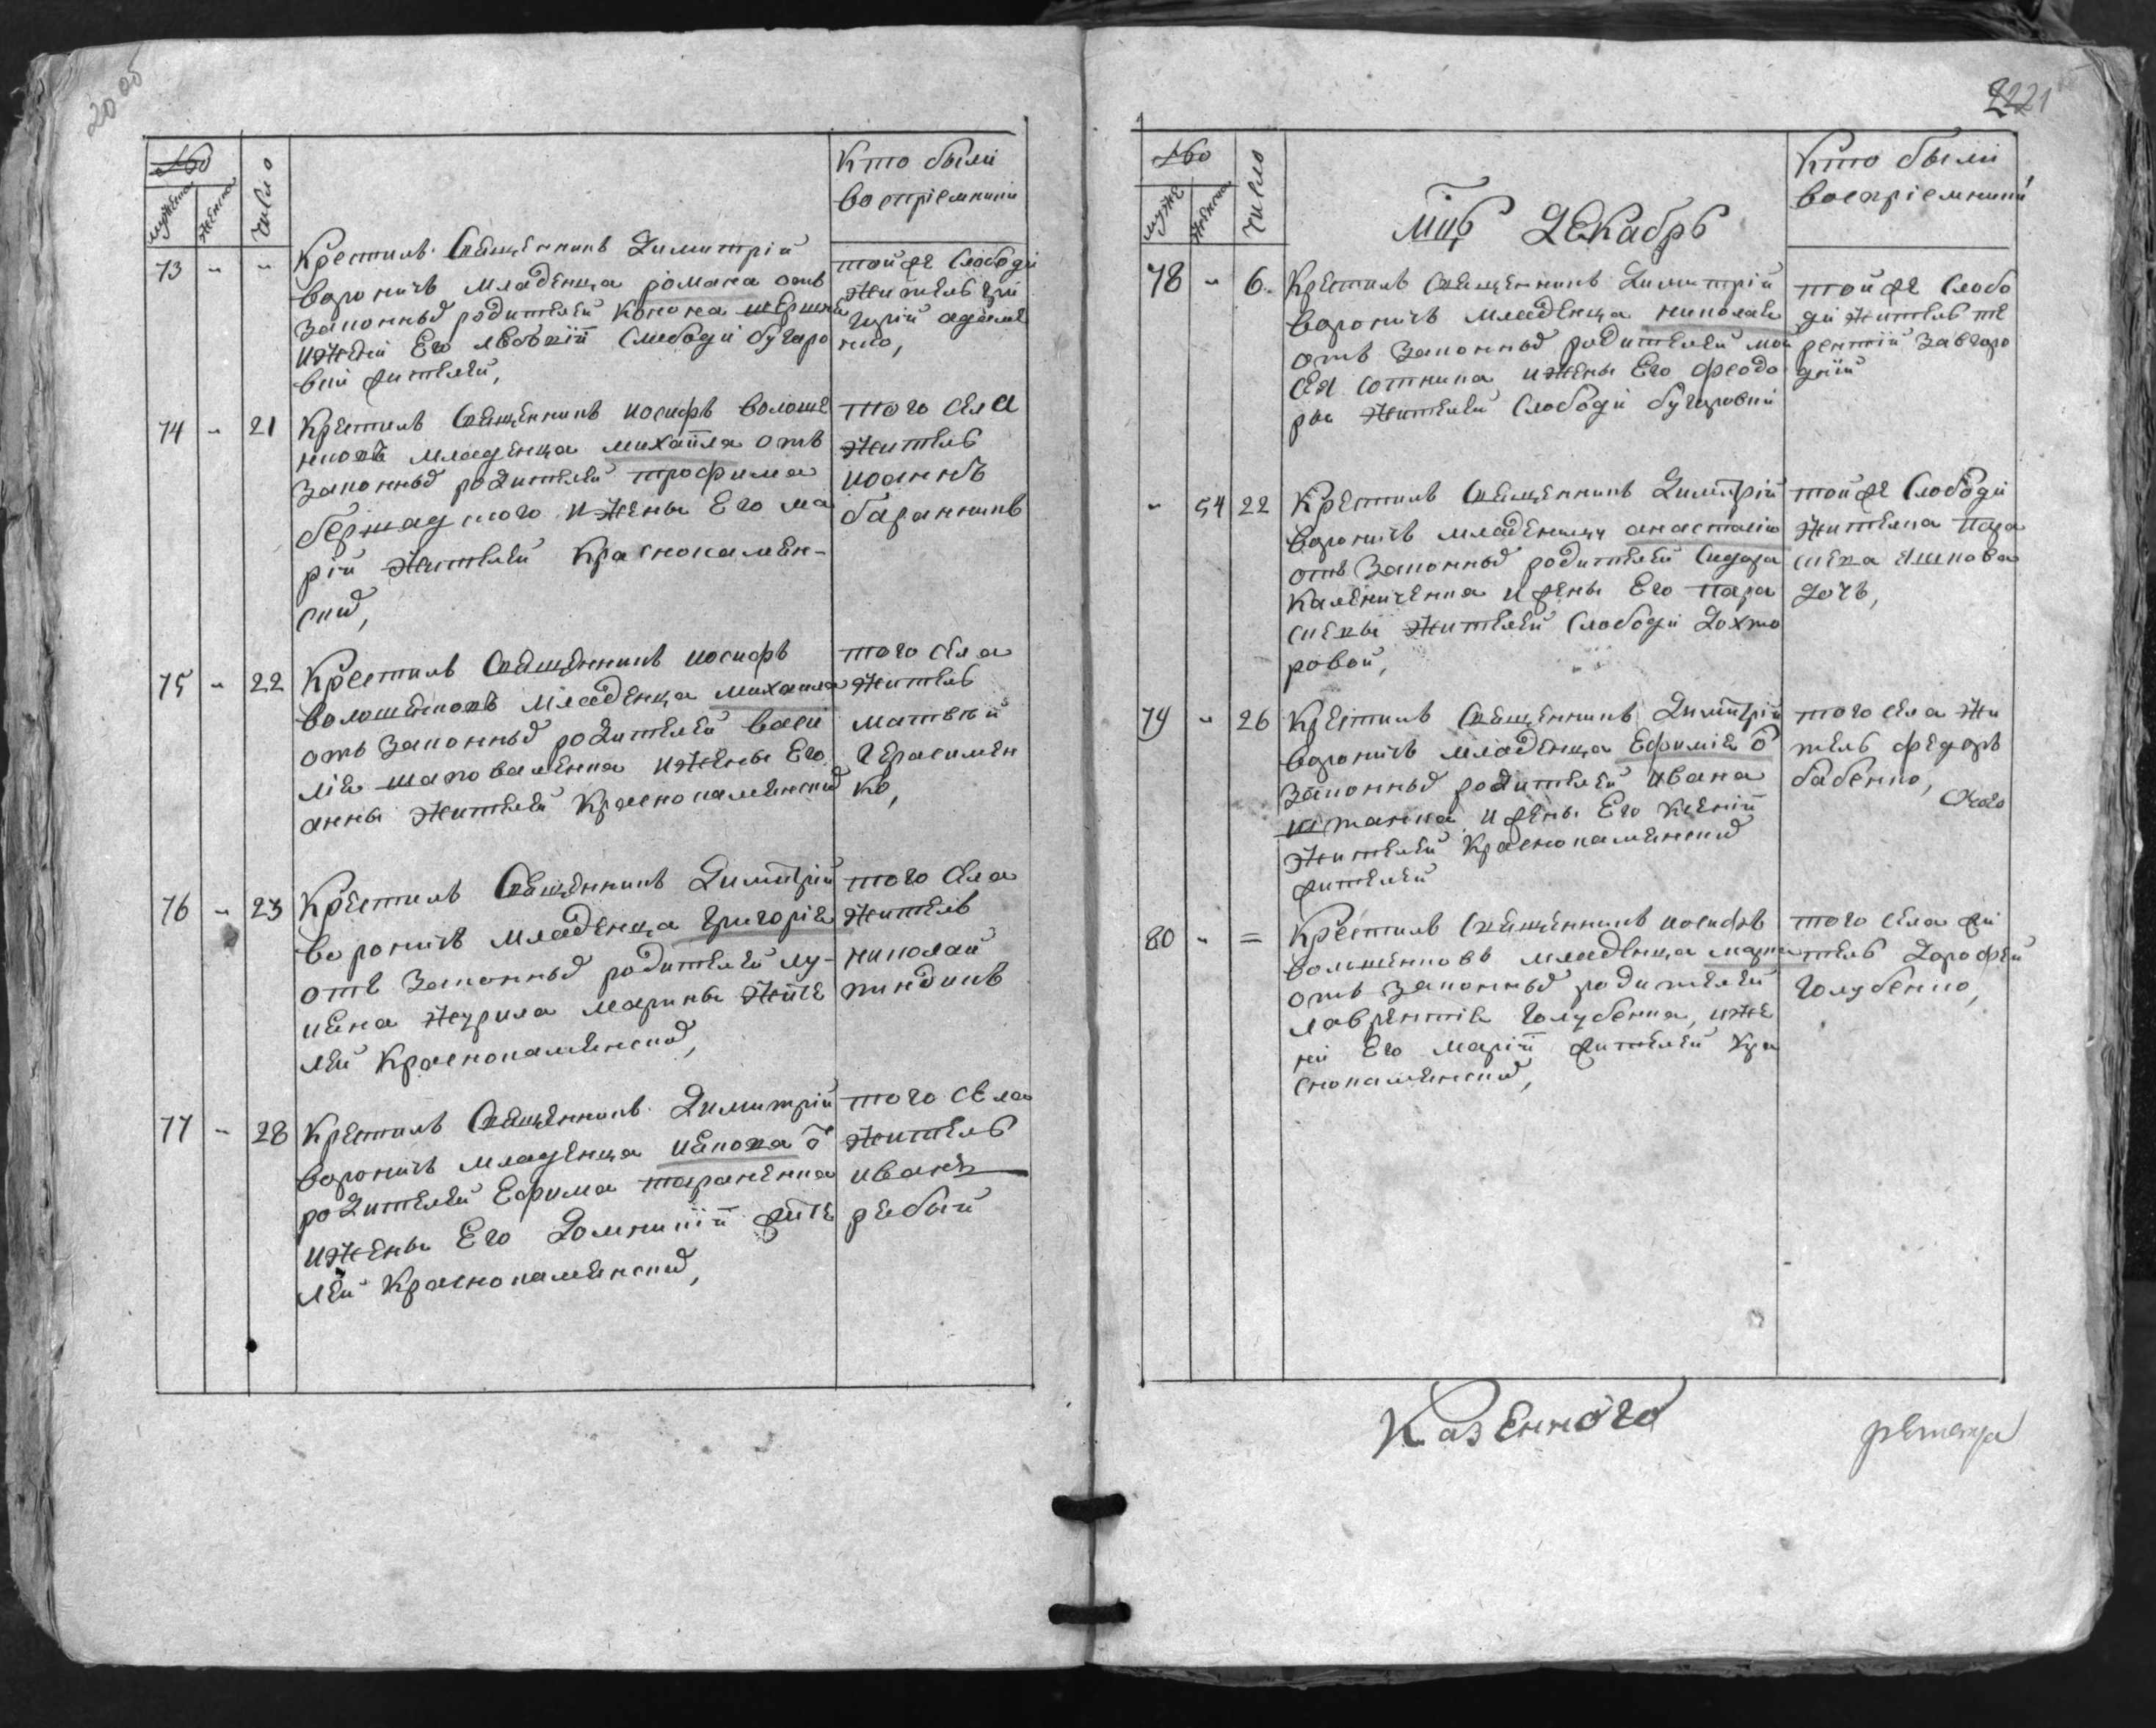 20 об
№
мужеска
женска
число
Кто были
воспріемники
73 " "
Крестилъ Священникъ Димитрій
вороничъ младенца романа отъ
законныхъ родителей Конона
ижены Его Слободи бугаро
вки жителей,
той же Слободи
житель гри
горій адаме
нко,
74 - 21
Крестилъ Священникъ иосифъ волоше
нковъ младенца михаила отъ
законныхъ родителей трофима
бершадского и жены Его ма
рiи жителей Краснокамен-
скихъ,
того села
житель
иоаннъ
баранникъ
75 - 22
Крестилъ Священникъ иосифъ
волошенковъ младенца михаила
отъ законныхъ родителей васи
лiя шаповаленка ижены Его
анны жителей Краснокаменскихъ
того села
житель
матвей
Герасимен
ко,
76 - 23
Крестилъ Священникъ Димитрій
вороничъ младенца григорія
отъ законныхъ родителей лу-
кіана журила марины жите
лей Краснокаменскихъ,
того села
житель
николай
пиндикъ
77 - 28
Крестилъ Священникъ Димитрій
вороничъ младенца иакова о
родителей Ефима тараненка
ижены Его Домникіи жите
лей Краснокаменскихъ,
того села
житель
иванъ
рябый
2221
№
муже
женска
число
мцъ Декабрь
Кто были
воспріемники
78 " 6
Крестилъ Священникъ Димитрій
вороничъ младенца николая
отъ законныхъ родителей мои
сея сотника ижены Его феодо
ры жителей Слободи бугаровки
той же Слобо
ди житель те
рентій завгоро
дній
" 54 22
Крестилъ Священникъ Димитрій
вороничъ младеницу анастасію
отъ законныхъ родителей Сидора
Калениченка и жены Его пара
скевы жителей Слободи Дохто
ровой,
той же Слободи
жителка пара
скева
дочь,
79 " 26
Крестилъ Священникъ Димитрій
вороничъ младенца Ефимія о
законныхъ родителей ивана
и жены Его Ксеніи
жителей Краснокаменскихъ
жителей
того села жи
тель федоръ
бабенко,
80 " =
Крестилъ Священникъ иосифъ
волошенковъ младенца марка
отъ законныхъ родителей
лаврентія голубенка, иже
ни Его маріи жителей Кра
снокаменскихъ,
того села жи
тель Дорофей
голубенко,
Казенного